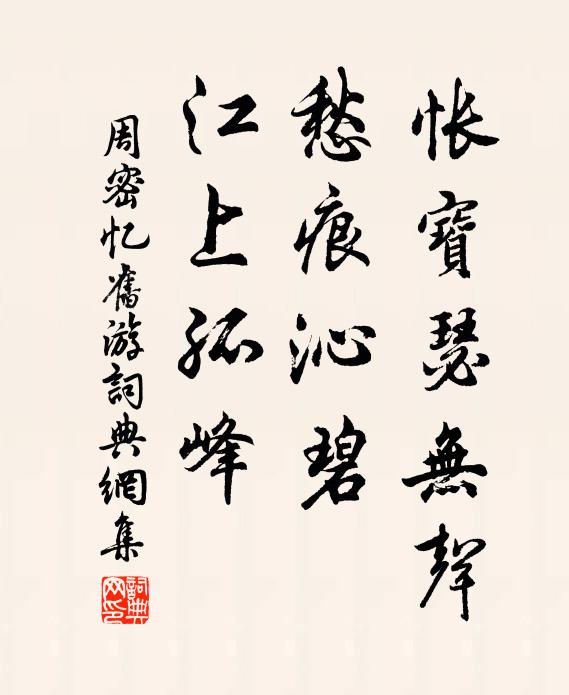 悵寶瑟無聲
愁痕沁碧
江上孤峰
周密忆舊游詞典網集
詞典网印